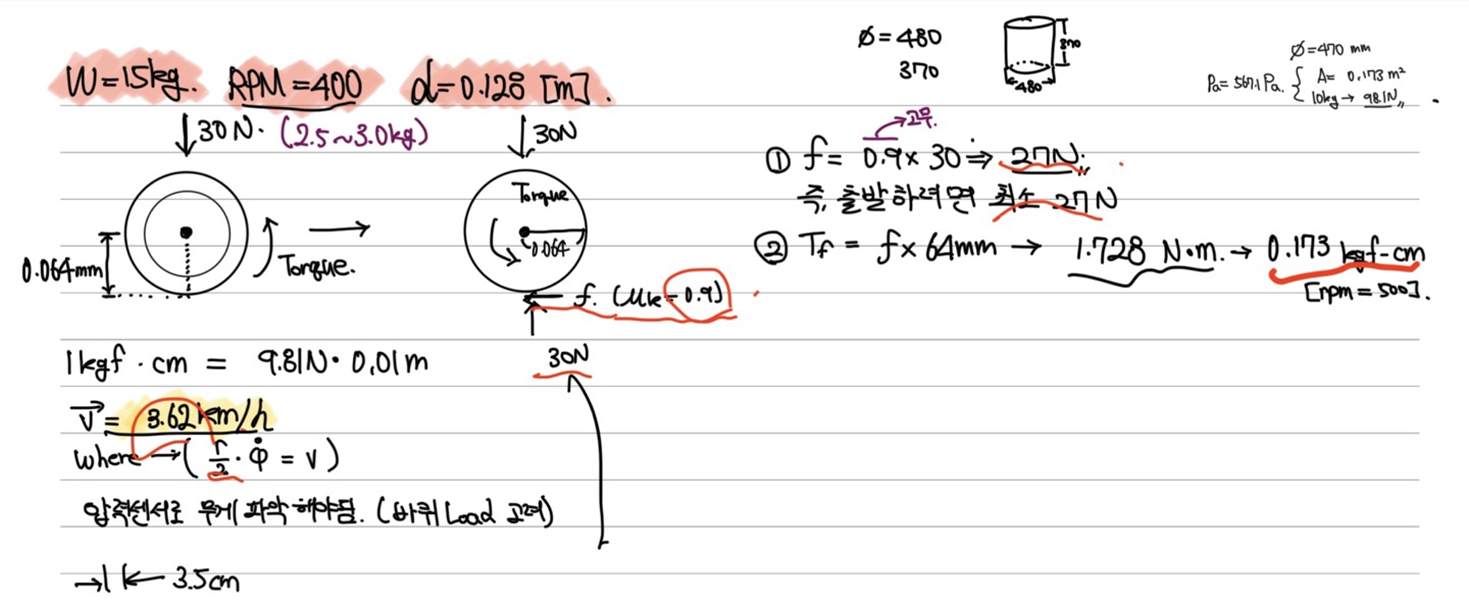 W=15kg. RPM=400 d=0.128 [m].
↓30N. (2.5~3.0kg)
↓30N
0.064mm
Torque.
Torque
0.064
f. (Mk=0.9)
30N
1kgf · cm = 9.81N · 0.01m
V= 3.62km/h
where →( r/2 · φ̇ = v )
압력센서로 무게 파악해야됨. (바퀴 Load 고려)
→| |← 3.5cm
Ø=480
370
480
Ø=470 mm
A= 0.173 m²
10kg → 98.1N,,
고무.
① f= 0.9 x 30 ⇒ 27N.
즉, 출발하려면 최소 27N
② Tf = f x 64mm → 1.728 N·m. → 0.173 kgf-cm
[rpm = 500].